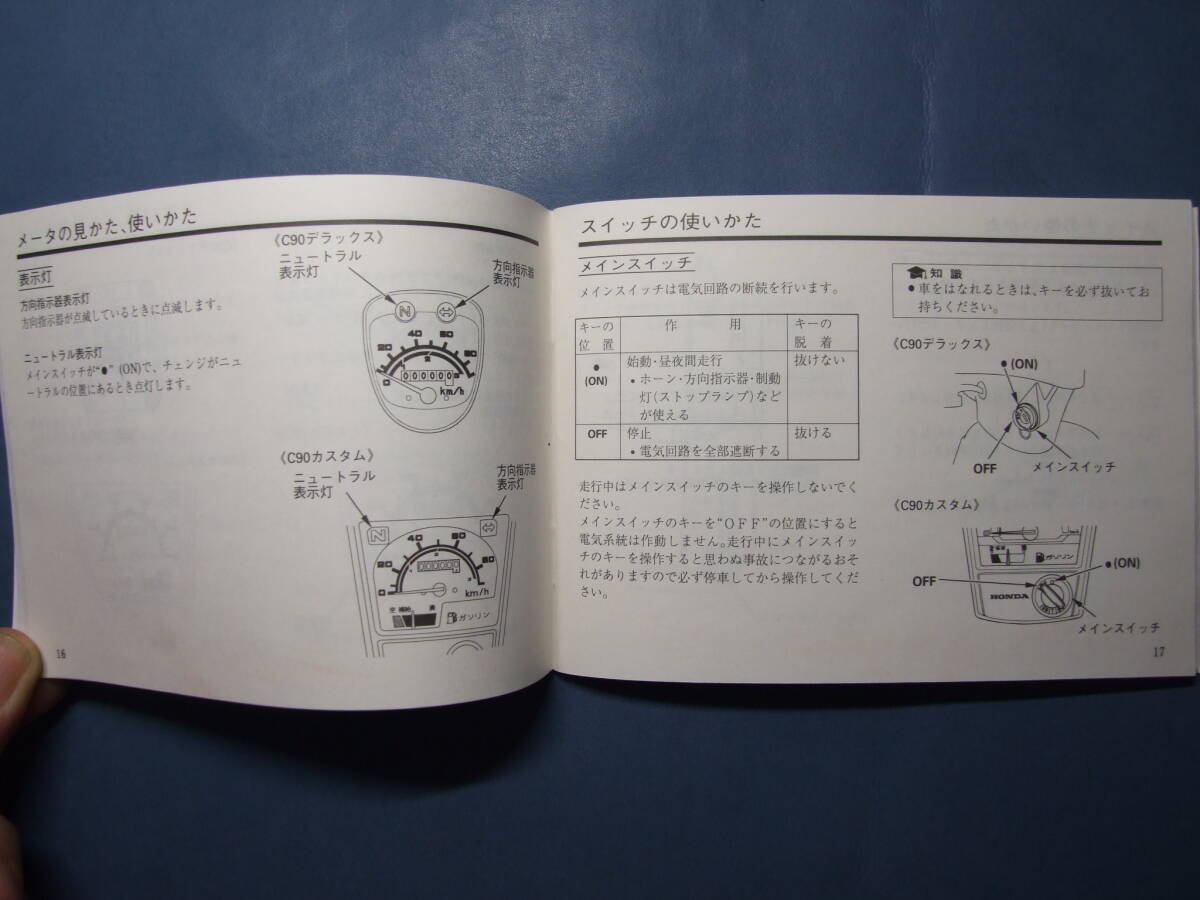 メータの見かた、使いかた
表示灯
方向指示器表示灯
方向指示器が点滅しているときに点滅します。
ニュートラル表示灯
メインスイッチが“●” (ON)で、チェンジがニュ
ートラルの位置にあるとき点灯します。
《C90デラックス》
ニュートラル
表示灯
方向指示器
表示灯
N
0 20 40 60 80
000000
km/h
《C90カスタム》
ニュートラル
表示灯
方向指示器
表示灯
N
0 20 40 60 80
000000
km/h
空 補給 満
ガソリン
16
スイッチの使いかた
メインスイッチ
メインスイッチは電気回路の断続を行います。
キーの
位 置
作 用
キーの
脱 着
●
(ON)
始動・昼夜間走行
• ホーン・方向指示器・制動
灯(ストップランプ)など
が使える
抜けない
OFF
停止
• 電気回路を全部遮断する
抜ける
走行中はメインスイッチのキーを操作しないでく
ださい。
メインスイッチのキーを“OFF”の位置にすると
電気系統は作動しません。走行中にメインスイッ
チのキーを操作すると思わぬ事故につながるおそ
れがありますので必ず停車してから操作してくだ
さい。
知 識
● 車をはなれるときは、キーを必ず抜いてお
持ちください。
《C90デラックス》
● (ON)
OFF
メインスイッチ
《C90カスタム》
ガソリン
OFF
● (ON)
HONDA
メインスイッチ
17